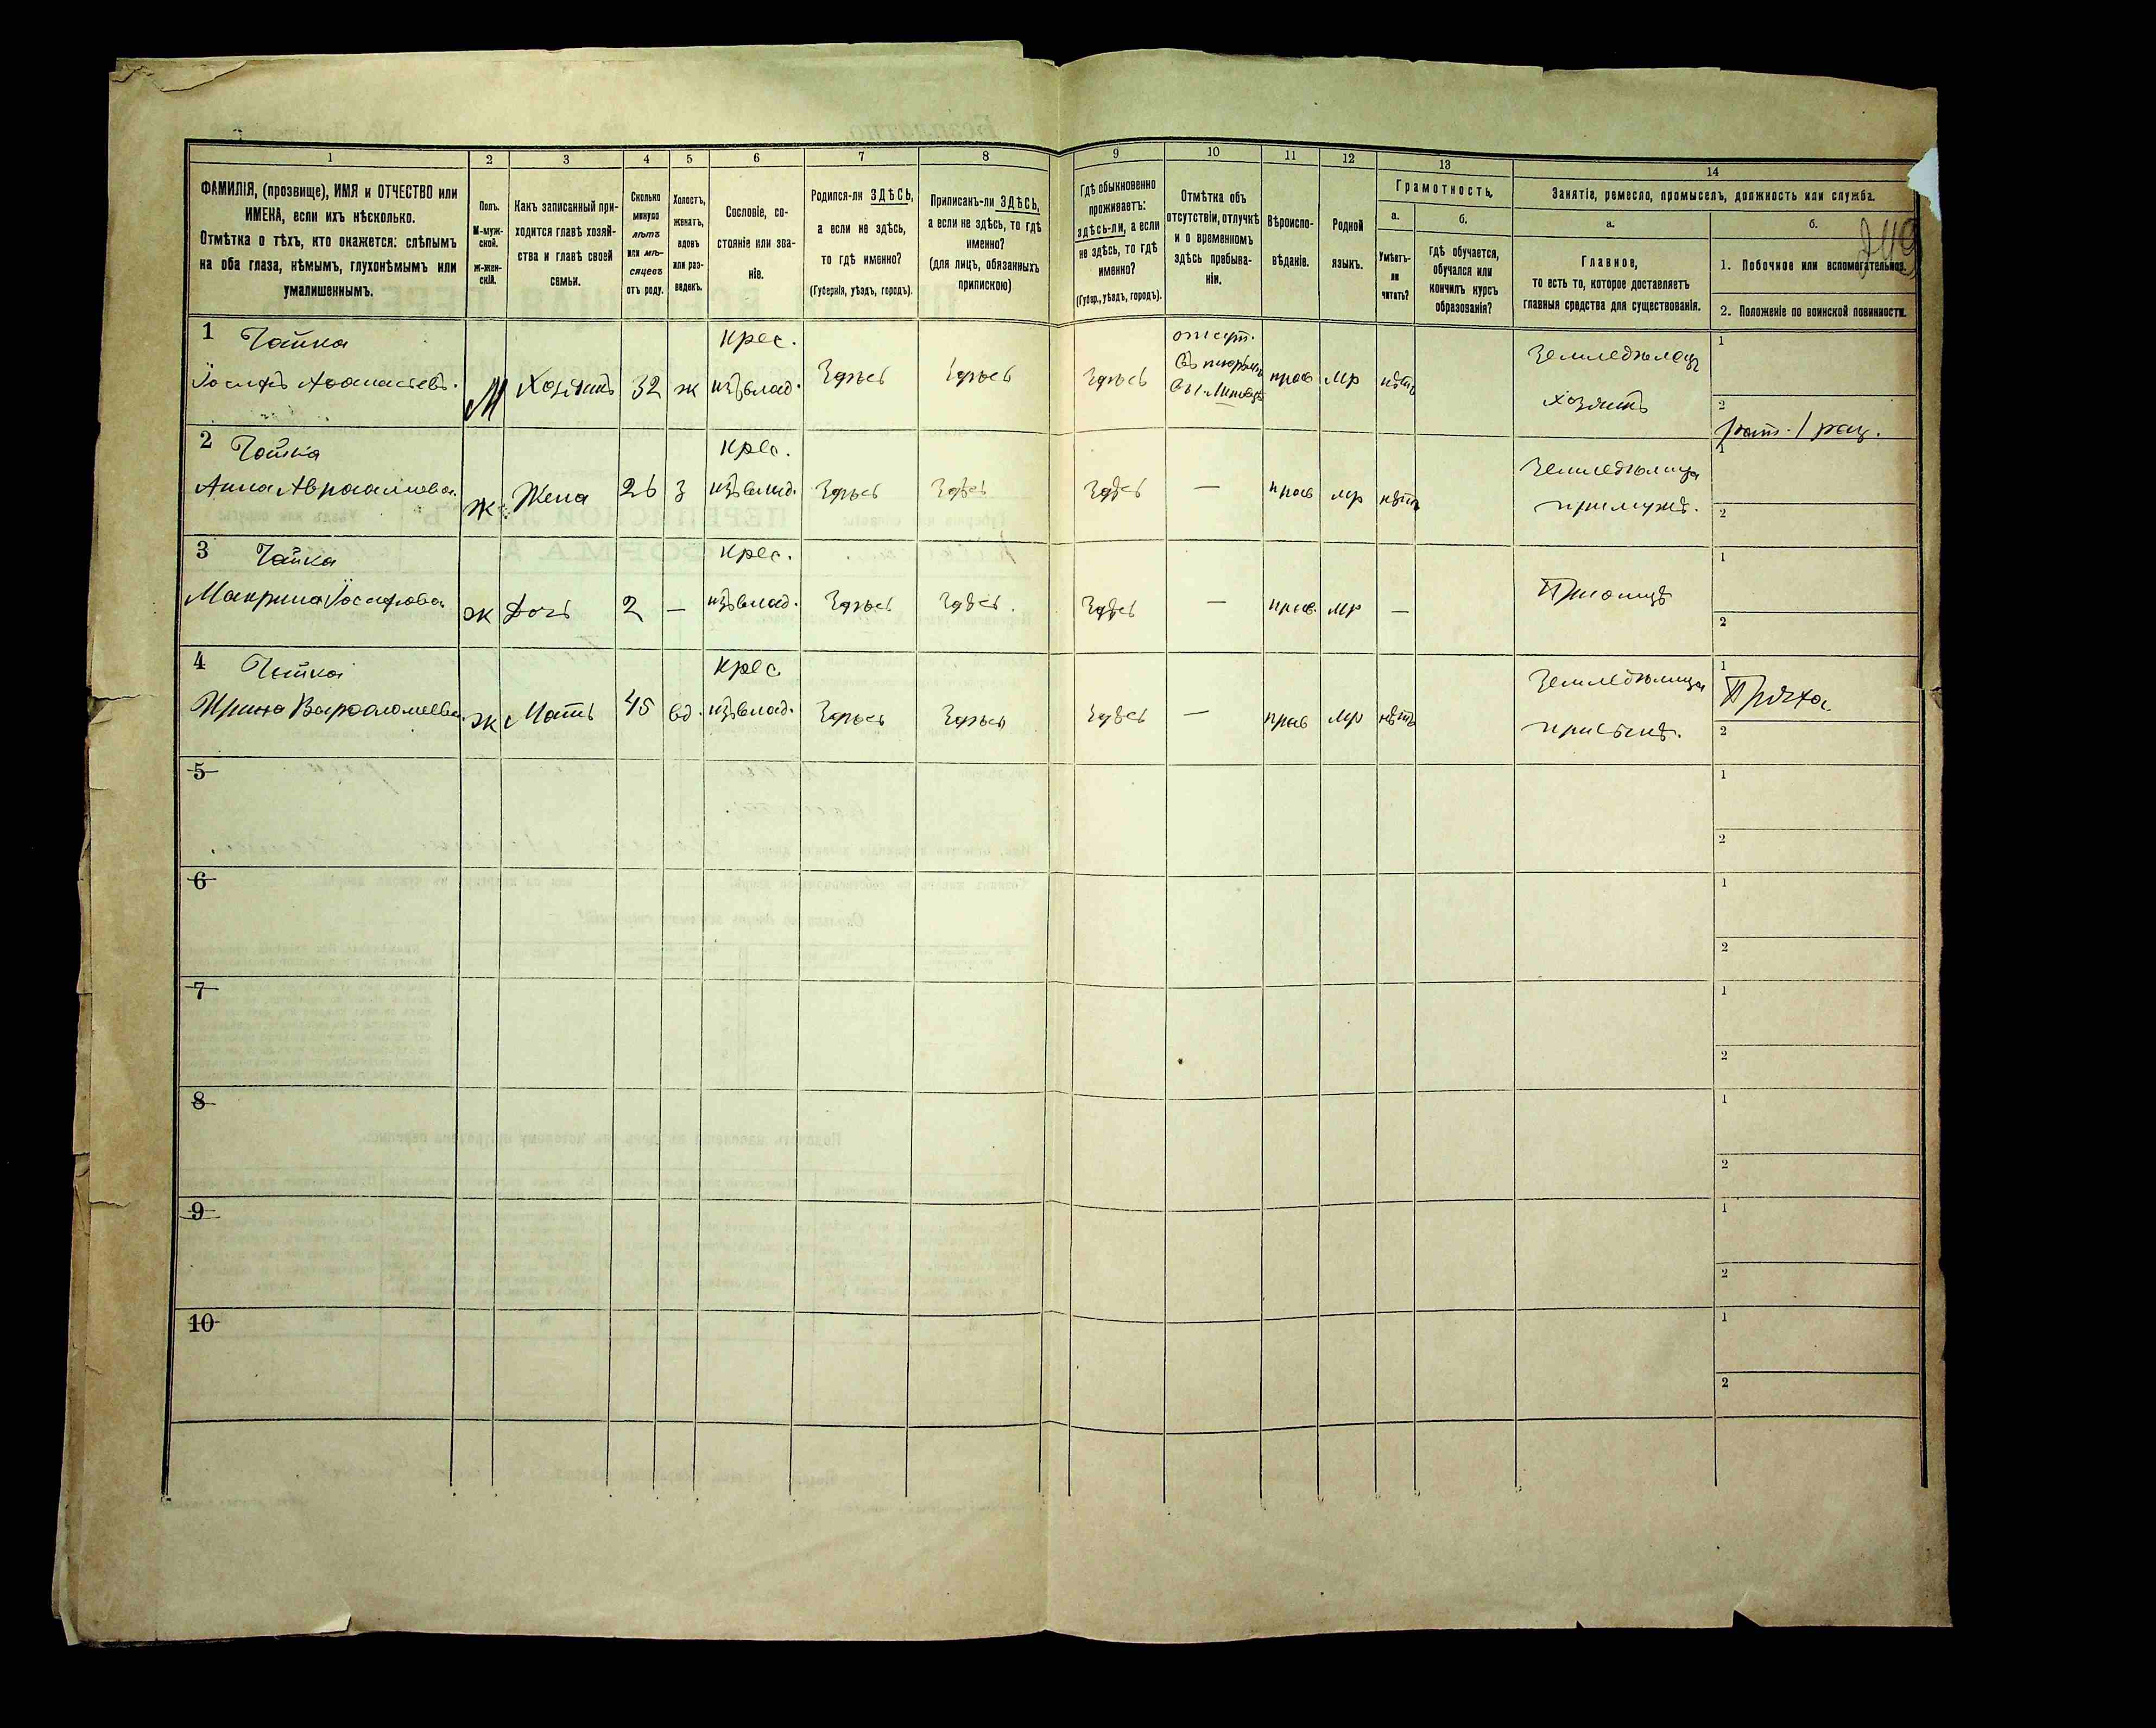 1 2 3 4 5 6 7 8 9 10 11 12 13 14
ФАМИЛІЯ, (прозвище), ИМЯ и ОТЧЕСТВО или
ИМЕНА, если ихъ нѣсколько.
Отмѣтка о тѣхъ, кто окажется: слѣпымъ
на оба глаза, нѣмымъ, глухонѣмымъ или
умалишеннымъ.
Полъ.
М-муж-
ской.
ж-жен-
скій.
Какъ записанный при-
ходится главѣ хозяй-
ства и главѣ своей
семьи.
Сколько
минуло
лѣтъ
или мѣ-
сяцевъ
отъ роду.
Холостъ,
женатъ,
вдовъ
или раз-
веденъ.
Сословіе, со-
стояніе или зва-
ніе.
Родился-ли ЗДѢСЬ,
а если не здѣсь,
то гдѣ именно?
(Губернія, уѣздъ, городъ).
Приписанъ-ли ЗДѢСЬ,
а если не здѣсь, то гдѣ
именно?
(для лицъ, обязанныхъ
припискою)
Гдѣ обыкновенно
проживаетъ:
здѣсь-ли, а если
не здѣсь, то гдѣ
именно?
(Губер., уѣздъ, городъ).
Отмѣтка объ
отсутствіи, отлучкѣ
и о временномъ
здѣсь пребыва-
ніи.
Вѣроиспо-
вѣданіе.
Родной
языкъ.
Грамотность.
а.
Умѣетъ-
ли
читать?
б.
гдѣ обучается,
обучался или
кончилъ курсъ
образованія?
Занятіе, ремесло, промыселъ, должность или служба.
а.
Главное,
то есть то, которое доставляетъ
главныя средства для существованія.
б.
1. Побочное или вспомогательное.
2. Положеніе по воинской повинности.
1 Чайка
Іосифъ Аѳанасьевъ.
М Хозяинъ 32 ж
Крес.
изъ влад.
Здѣсь Здѣсь Здѣсь
отсут.
прав мр нѣтъ
Земледѣлецъ
хозяинъ
1
2
рат. 1 раз.
2 Чайка
Анна Авраамова.
ж. Жена 26 з
крес.
изъ влад.
Здѣсь Здѣсь Здѣсь — прав мр нѣтъ
Земледѣлица
при мужѣ.
1
2
3 Чайка
Макрина Іосифова
ж Дочь 2 —
крес.
изъ влад.
Здѣсь Здѣсь. Здѣсь — прав. мр —
При отцѣ
1
2
4 Чайка
Ирина Варѳоломеева.
ж Мать 45 вд.
крес
изъ влад.
Здѣсь Здѣсь Здѣсь — прав мр нѣтъ
Земледѣлица
при сынѣ.
1
Пряха
2
5
1
2
6
1
2
7
1
2
8
1
2
9
1
2
10
1
2